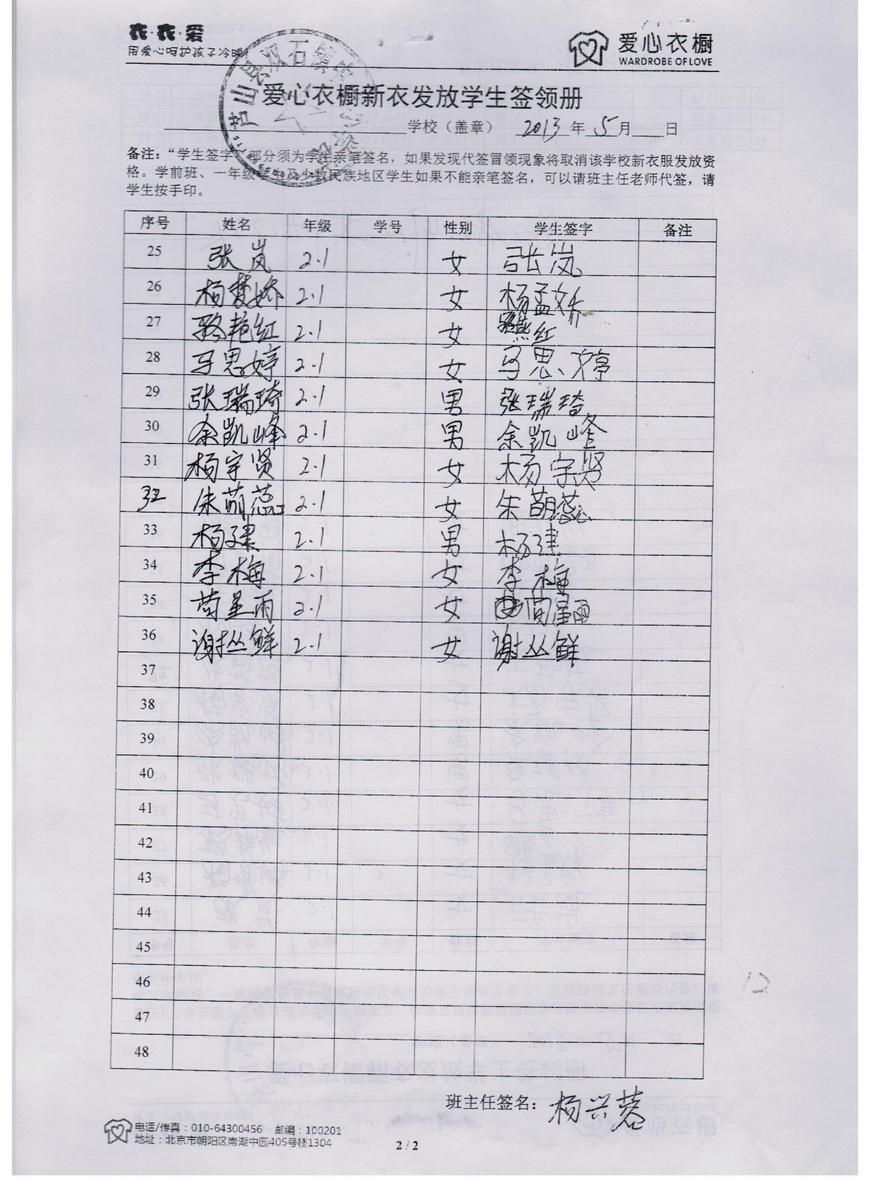 衣·衣·爱
用爱心呵护孩子冷暖!
爱心衣橱
WARDROBE OF LOVE
爱心衣橱新衣发放学生签领册
学校（盖章） 2013 年 5月 日
备注：“学生签字”部分须为学生亲笔签名，如果发现代签冒领现象将取消该学校新衣服发放资
格。学前班、一年级 及少数民族地区学生如果不能亲笔签名，可以请班主任老师代签，请
学生按手印。
序号 姓名 年级 学号 性别 学生签字 备注
25 张岚 2.1 女 张岚
26 杨梦娇 2.1 女 杨孟娇
27 骆艳红 2.1 女 红
28 马思婷 2.1 女 马思婷
29 张瑞琦 2.1 男 张瑞琦
30 余凯峰 2.1 男 余凯峰
31 杨宇贤 2.1 女 杨宇贤
32 朱萌蕊 2.1 女 朱萌蕊
33 杨建 2.1 男 杨建
34 李梅 2.1 女 李梅
35 苟星雨 2.1 女
36 谢丛鲜 2.1 女 谢丛鲜
37
38
39
40
41
42
43
44
45
46
47
48
班主任签名：杨兴蓉
电话/传真：010-64300456 邮编：100201
地址：北京市朝阳区南湖中园405号楼1304
2 / 2
12